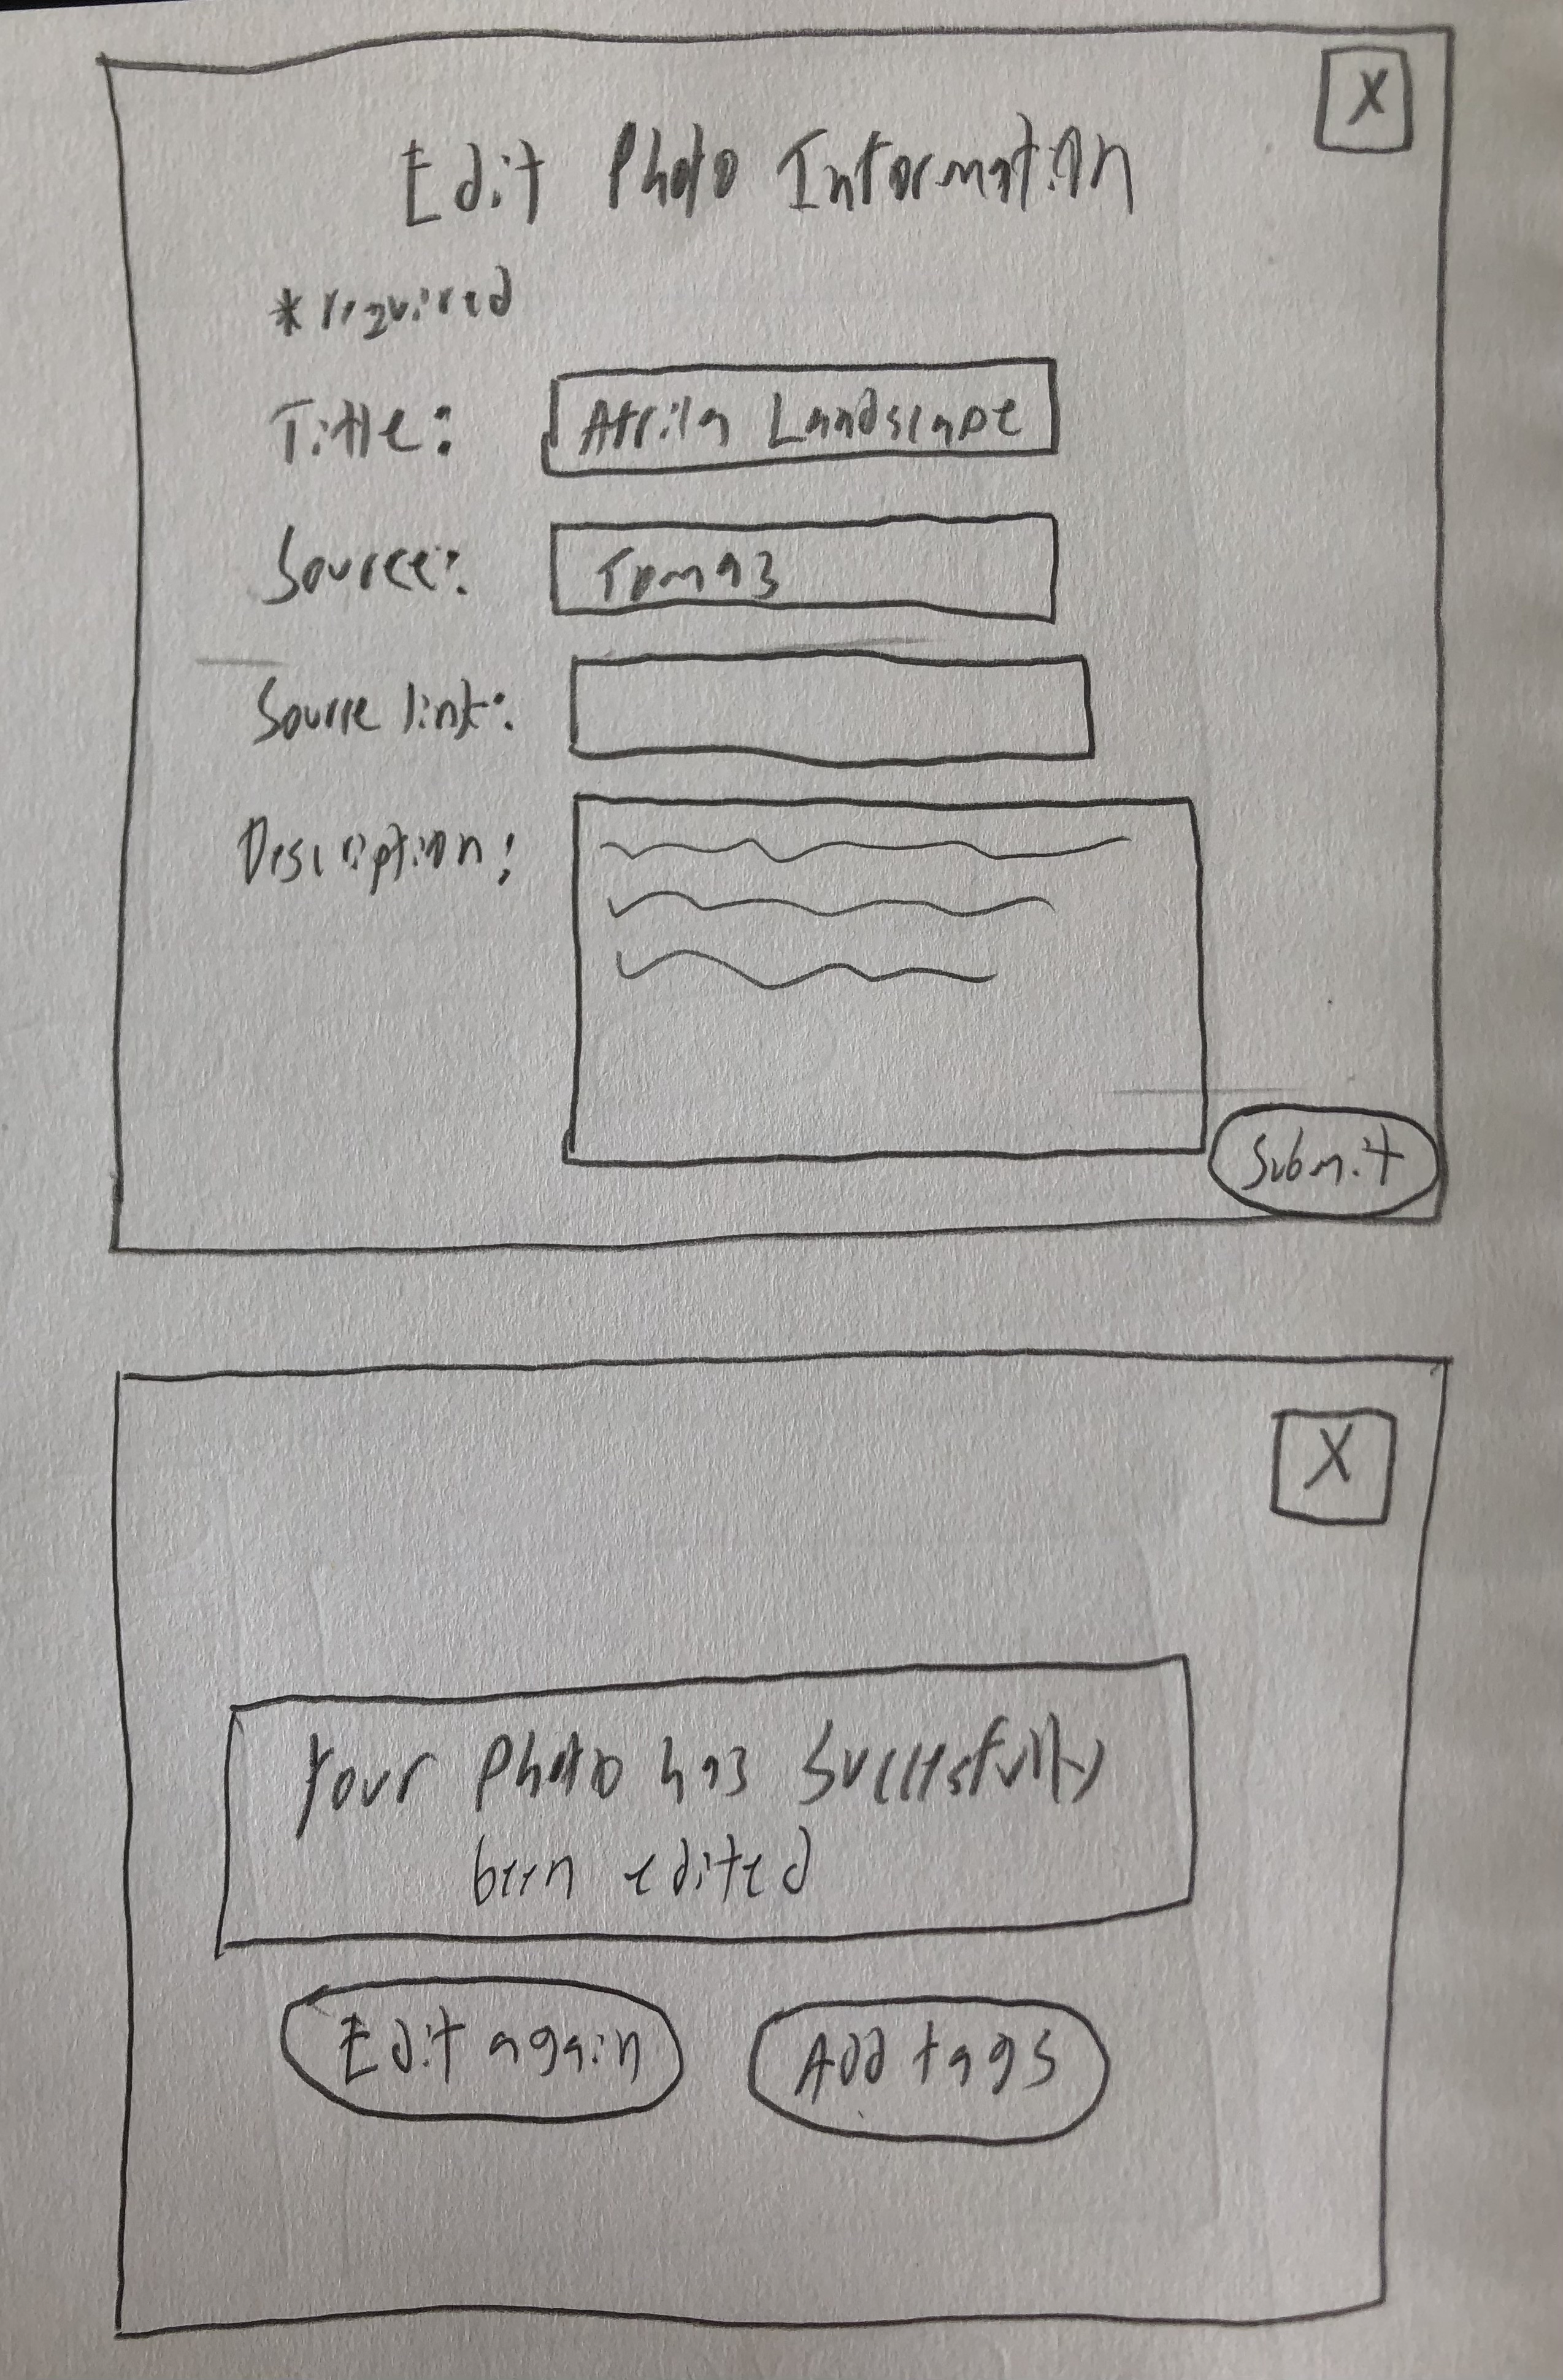 X
Edit Photo Information
*required
Title: Africa Landscape
Source: Tom93
Source link:
Description:
Submit
X
Your Photo has Successfully
been edited
Edit again Add tags